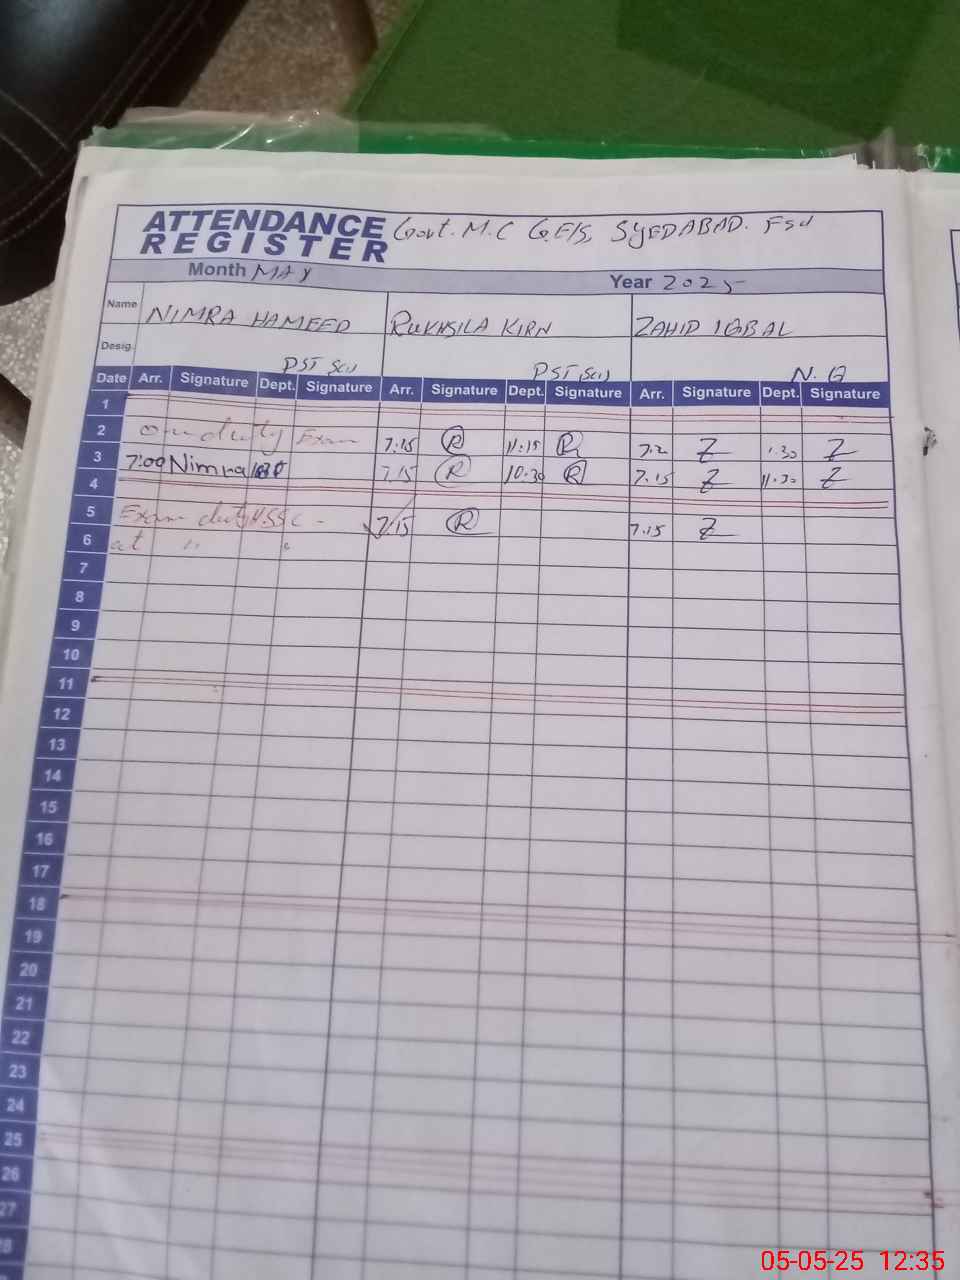 ATTENDANCE REGISTER Govt. M.C G.E/S, SYEDABAD. Fsd
Month MAY Year 2025
Name NIMRA HAMEED RUKHSILA KIRN ZAHID IQBAL
Desig. PST PST N.Q
Date Arr. Signature Dept. Signature Arr. Signature Dept. Signature Arr. Signature Dept. Signature
1
2 On duty Exam 7.15 R 11.15 R 7.2 Z 1.30 Z
3 7:00 Nimra 7.15 R 10.30 R 7.15 Z 11.30 Z
4
5 Exam duty 7.15 R 7.15 Z
6 at
7
8
9
10
11
12
13
14
15
16
17
18
19
20
21
22
23
24
25
26
27
28
05-05-25 12:35